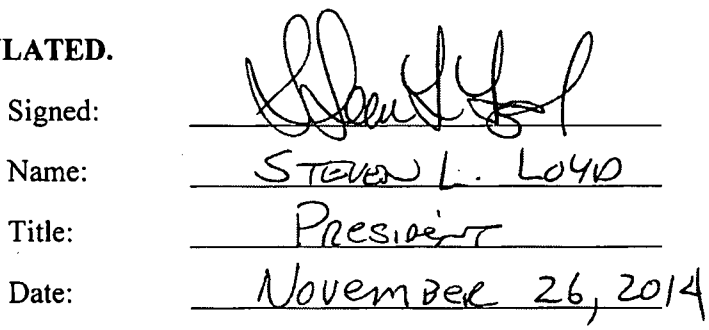 LATED.
Signed: Steven L Loyd
Name: STEVEN L. LOYD
Title: PRESIDENT
Date: NOVEMBER 26, 2014